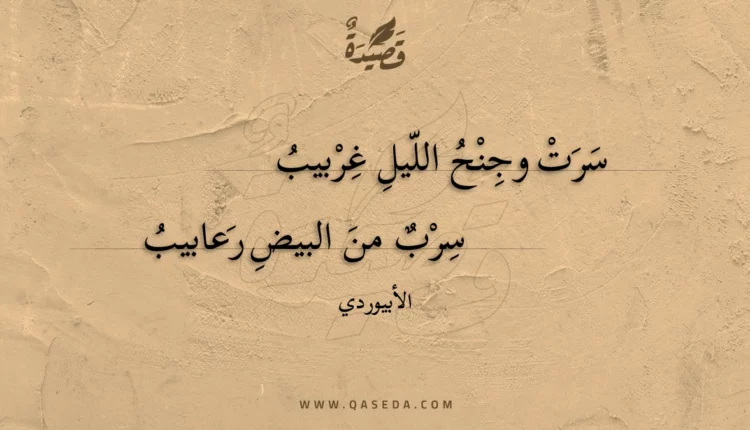 قَصِيدَةٌ
سَرَتْ وجِنْحُ اللّيلِ غِرْبيبُ
سِرْبٌ منَ البيضِ رَعابيبُ
الأبيوردي
WWW.QASEDA.COM